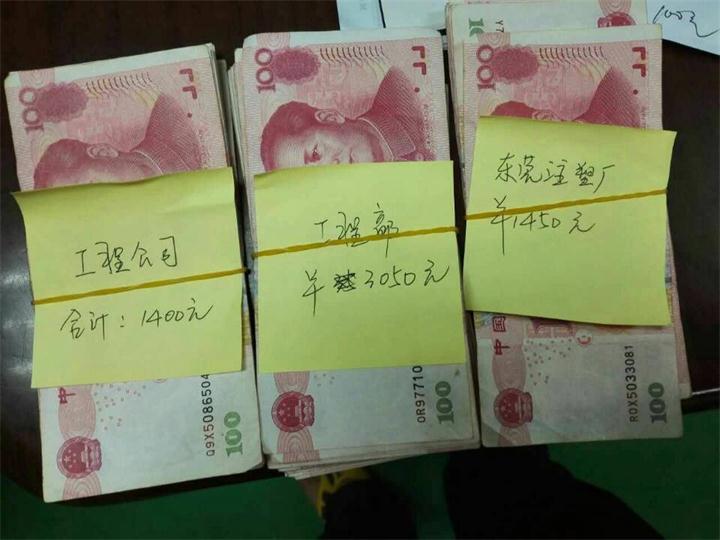 工程公司
合计：1400元
工程部
¥3050元
东莞注塑厂
¥1450元
100元
100
100
100
中
中国
Q9X5086504
OR97710
R0X5033081
100
100
100
100